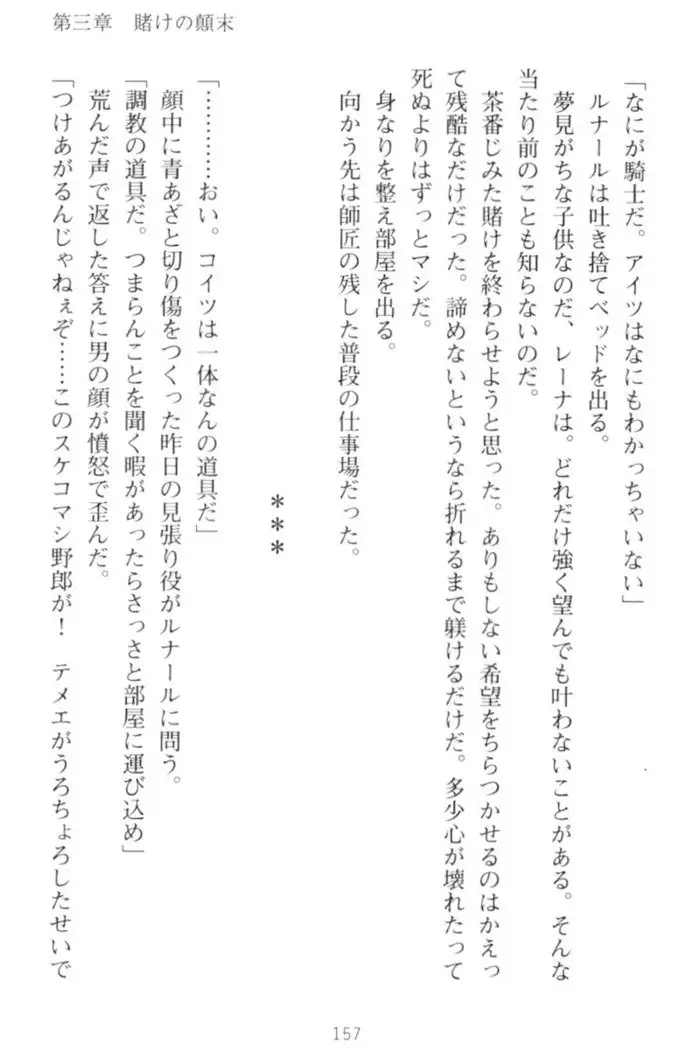 第三章　賭けの顛末
「なにが騎士だ。アイツはなにもわかっちゃいない」
ルナールは吐き捨てベッドを出る。
夢見がちな子供なのだ、レーナは。どれだけ強く望んでも叶わないことがある。そんな
当たり前のことも知らないのだ。
茶番じみた賭けを終わらせようと思った。ありもしない希望をちらつかせるのはかえっ
て残酷なだけだった。諦めないというなら折れるまで躾けるだけだ。多少心が壊れたって
死ぬよりはずっとマシだ。
身なりを整え部屋を出る。
向かう先は師匠の残した普段の仕事場だった。
＊＊＊
「…………おい。コイツは一体なんの道具だ」
顔中に青あざと切り傷をつくった昨日の見張り役がルナールに問う。
「調教の道具だ。つまらんことを聞く暇があったらさっさと部屋に運び込め」
荒んだ声で返した答えに男の顔が憤怒で歪んだ。
「つけあがるんじゃねぇぞ……このスケコマシ野郎が！　テメエがうろちょろしたせいで
157